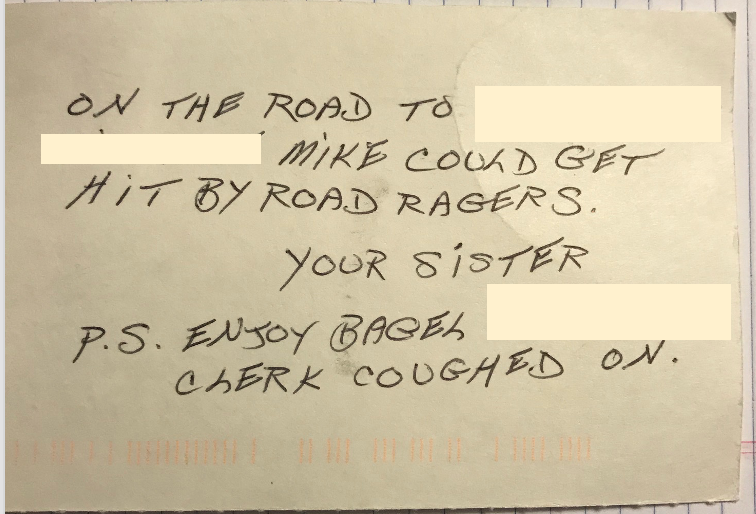 ON THE ROAD TO
MIKE COULD GET
HIT BY ROAD RAGERS.
YOUR SISTER
P.S. ENJOY BAGEL
CLERK COUGHED ON.